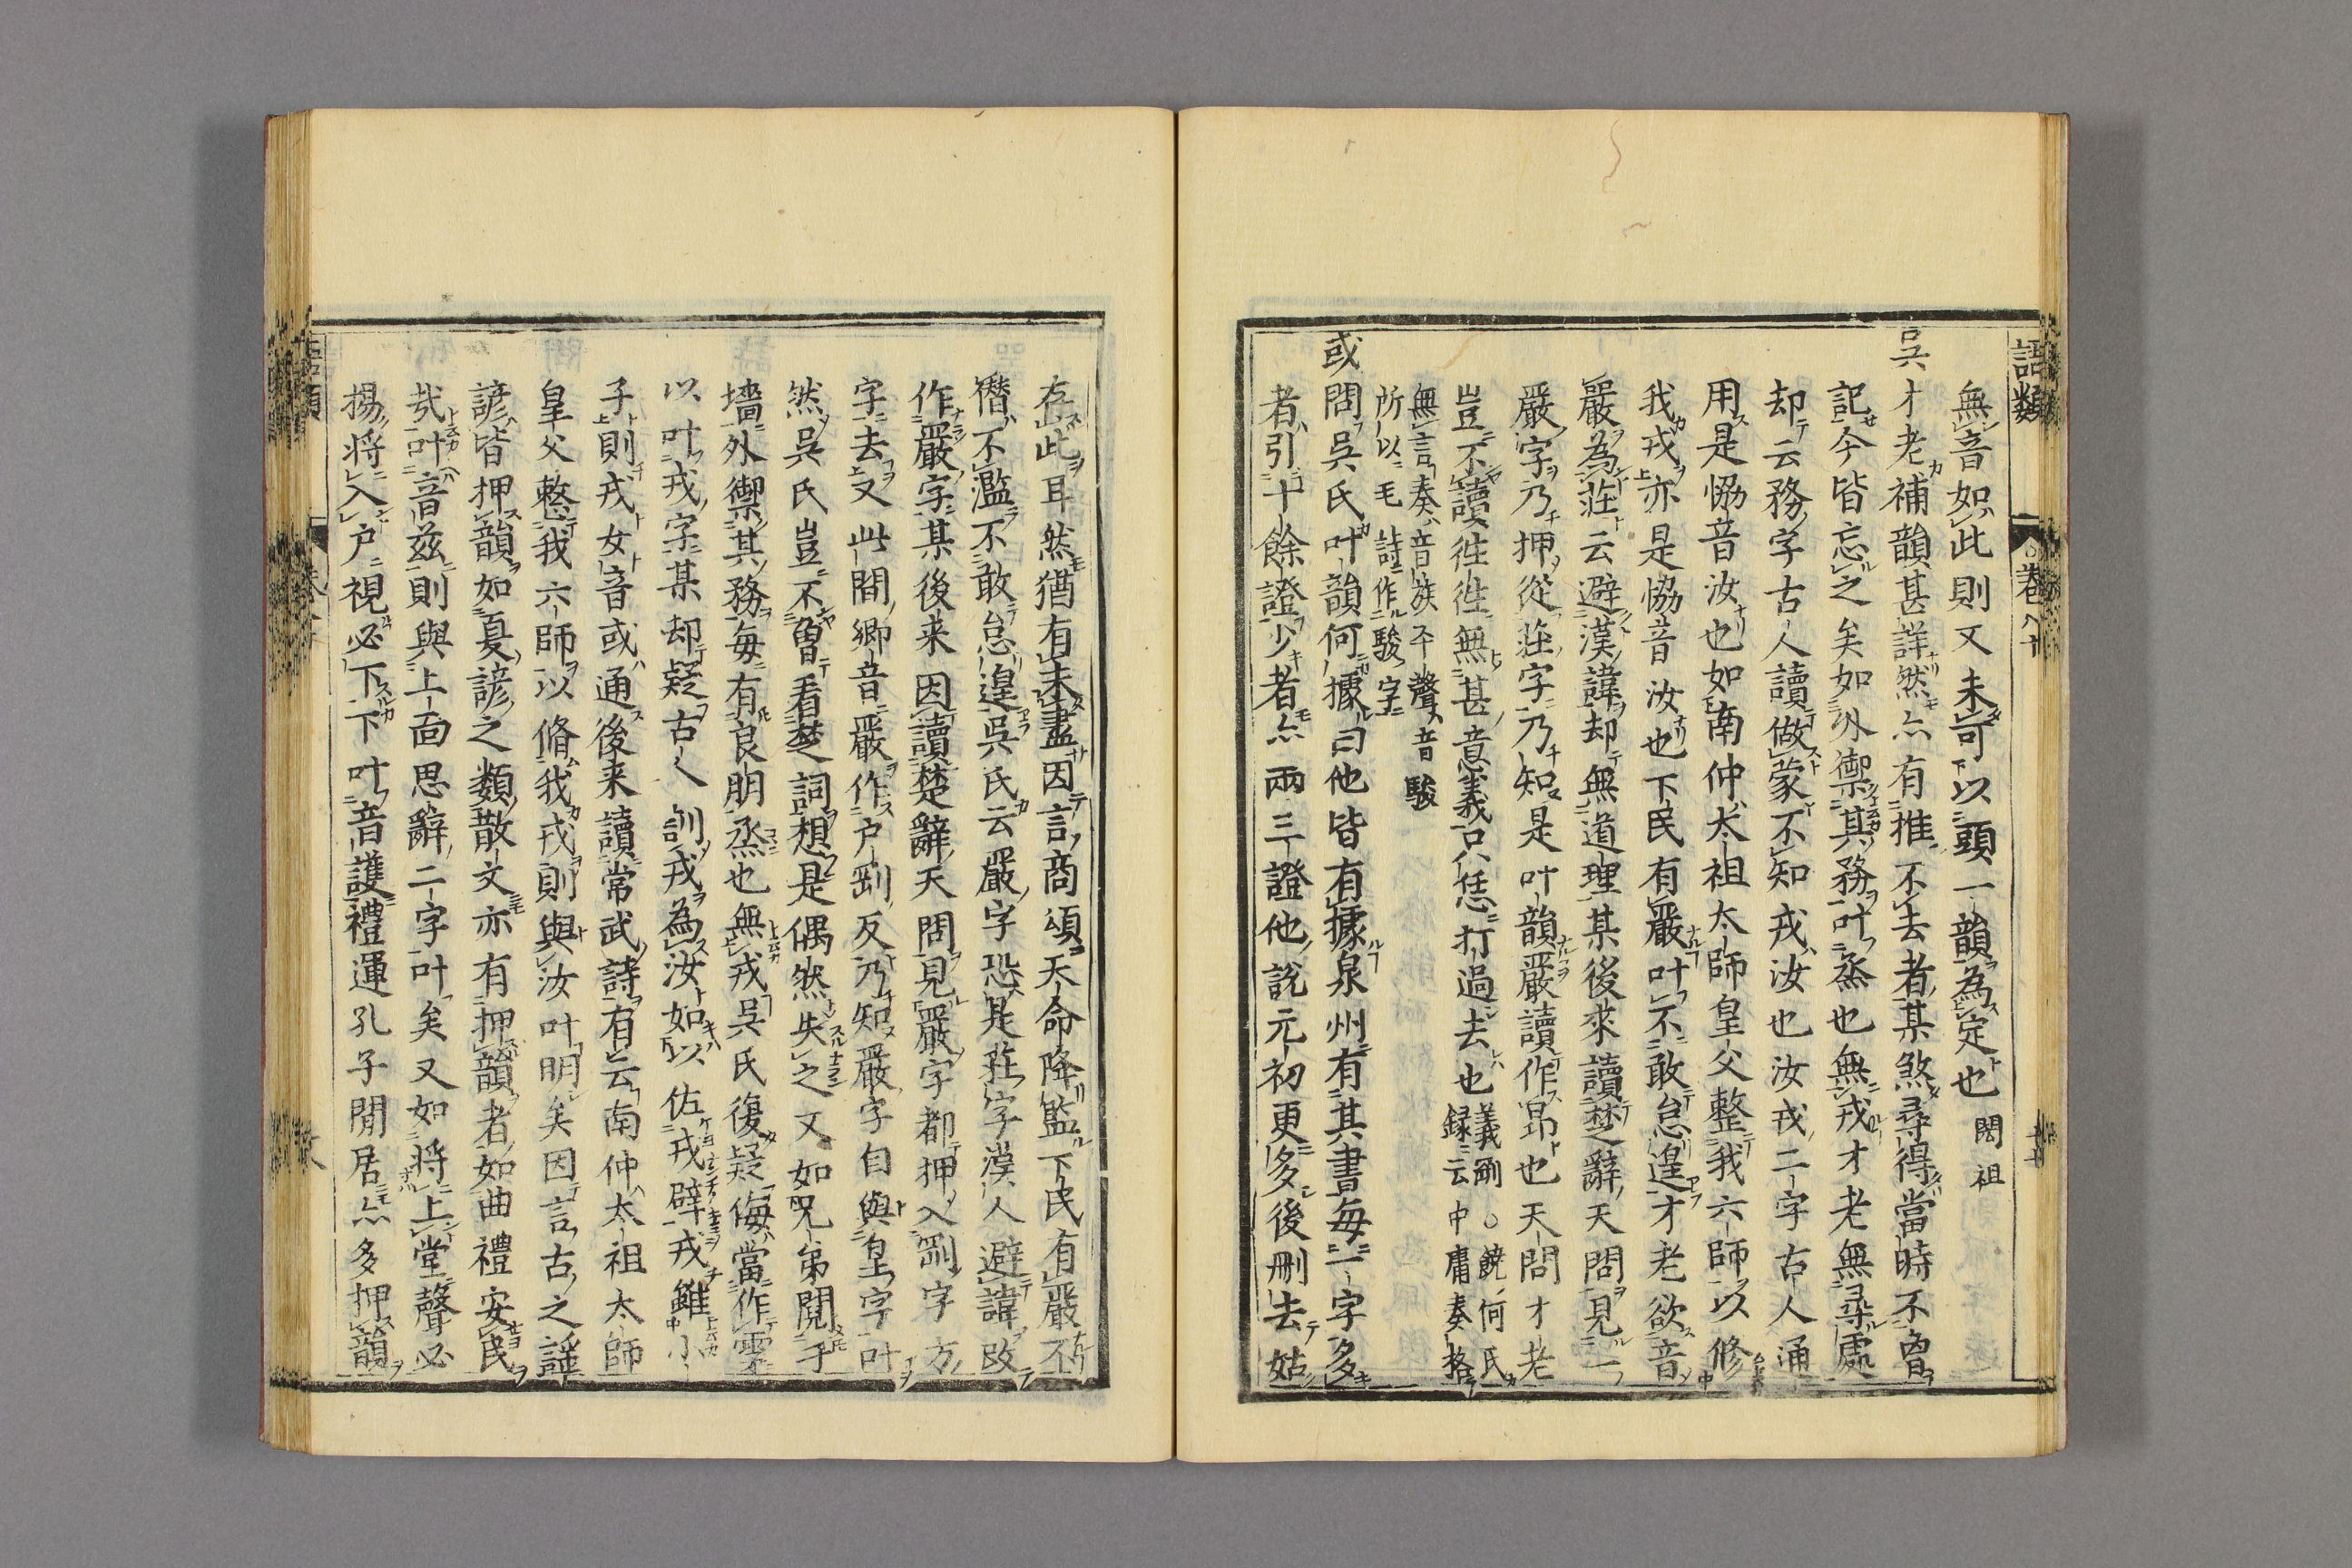 語類
卷八十
無音如此則又未可以頭一韻為定也 閎祖
吳才老補韻甚詳然亦有推不去者某煞尋得當時不曾
記今皆忘之矣如外禦其務叶烝也無戎才老無尋處
却云務字古人讀做蒙不知戎汝也汝戎二字古人通
用是恊音汝也如南仲太祖太師皇父整我六師以修
我戎亦是恊音汝也下民有嚴叶不敢怠遑才老欲音
嚴為莊云避漢諱却無道理某後來讀楚辭天問見一
嚴字乃押從莊字乃知是叶韻嚴讀作昂也天問才老
豈不讀徃徃無甚意義只恁打過去也 義剛○饒何氏
録云中庸奏格
無言奏音族平聲音駿
所以毛詩作駿字
或問吳氏叶韻何據曰他皆有據泉州有其書每一字多
者引十餘證少者亦兩三證他說元初更多後刪去姑
存此耳然猶有未盡因言商頌天命降監下民有嚴不
僭不濫不敢怠遑吳氏云嚴字恐是莊字漢人避諱改
作嚴字某後来因讀楚辭天問見嚴字都押入剛字方
字去又此間鄉音嚴作户剛反乃知嚴字自與皇字叶
然吳氏豈不曾看楚詞想是偶然失之又如兄弟鬩于
墻外禦其務每有良朋烝也無戎吳氏復疑侮當作䨪
以叶戎字某却疑古人訓戎為汝如以佐戎辟戎雖小
子則戎女音或通後来讀常武詩有云南仲太祖太師
皇父整我六師以脩我戎則與汝叶明矣因言古之謡
諺皆押韻如夏諺之類散文亦有押韻者如曲禮安民
㢤叶音兹則與上面思辭二字叶矣又如将上堂聲必
揚将入户視必下下叶音護禮運孔子閒居亦多押韻
語類